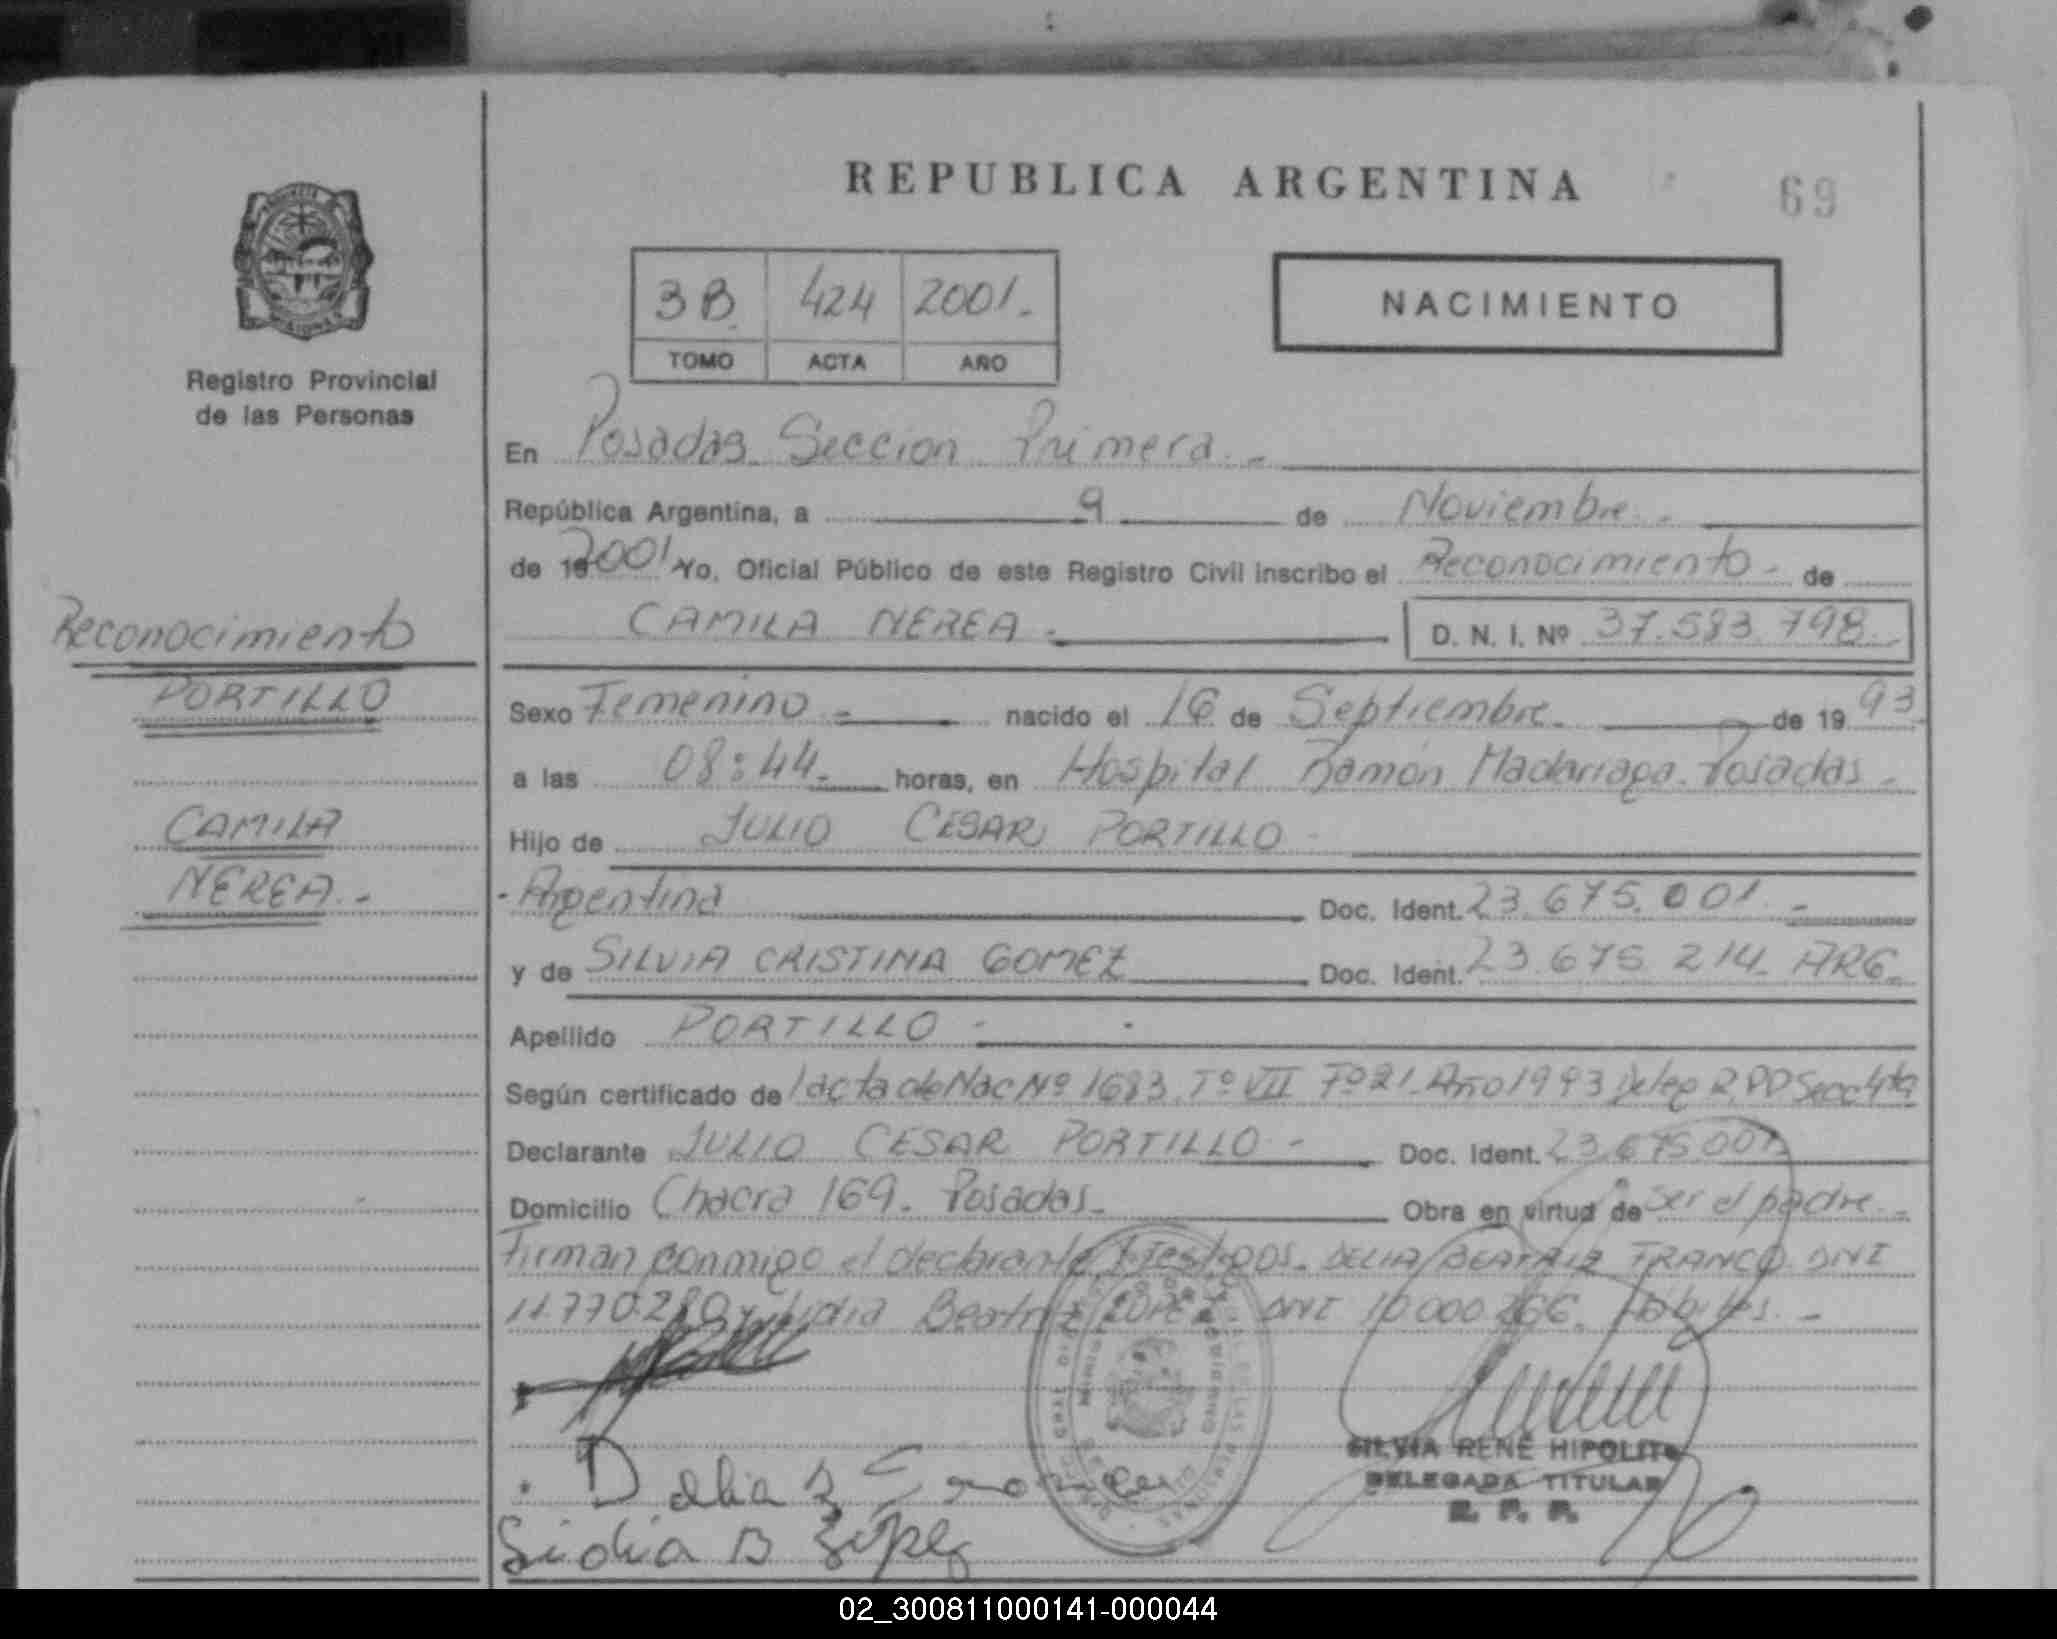 REPUBLICA ARGENTINA
69
3B 424 2001.
TOMO ACTA AÑO
NACIMIENTO
Registro Provincial
de las Personas
En Posadas Seccion Primera.-
República Argentina, a 9 de Noviembre.-
de 19 2001 Yo, Oficial Público de este Registro Civil inscribo el Reconocimiento - de
CAMILA NEREA.- D. N. I. Nº 37.583.798.
Reconocimiento
PORTILLO
CAMILA
NEREA.-
Sexo Femenino - nacido el 16 de Septiembre. de 19 93
a las 08:44. horas, en Hospital Ramón Madariaga. Posadas -
Hijo de JULIO CESAR PORTILLO -
- Argentina Doc. Ident. 23.675.001. -
y de SILVIA CRISTINA GOMEZ Doc. Ident. 23.675 214. ARG.
Apellido PORTILLO -
Según certificado de / acta de Nac Nº 1683. Tº VII Fº 21. Año 1993 Deleg R.PP Secc 4ta
Declarante JULIO CESAR PORTILLO - Doc. Ident. 23.675.001
Domicilio Chacra 169. Posadas. Obra en virtud de ser el padre.-
Firman conmigo el declarante y testigos. DELIA BEATRIZ FRANCO DNI
11.770.280 y Lidia Beatriz LOPEZ DNI 10.000.266. Hábiles.-
SILVIA RENÉ HIPOLITO
DELEGADA TITULAR
R. P. P.
Delia B
Lidia B López
02_300811000141-000044